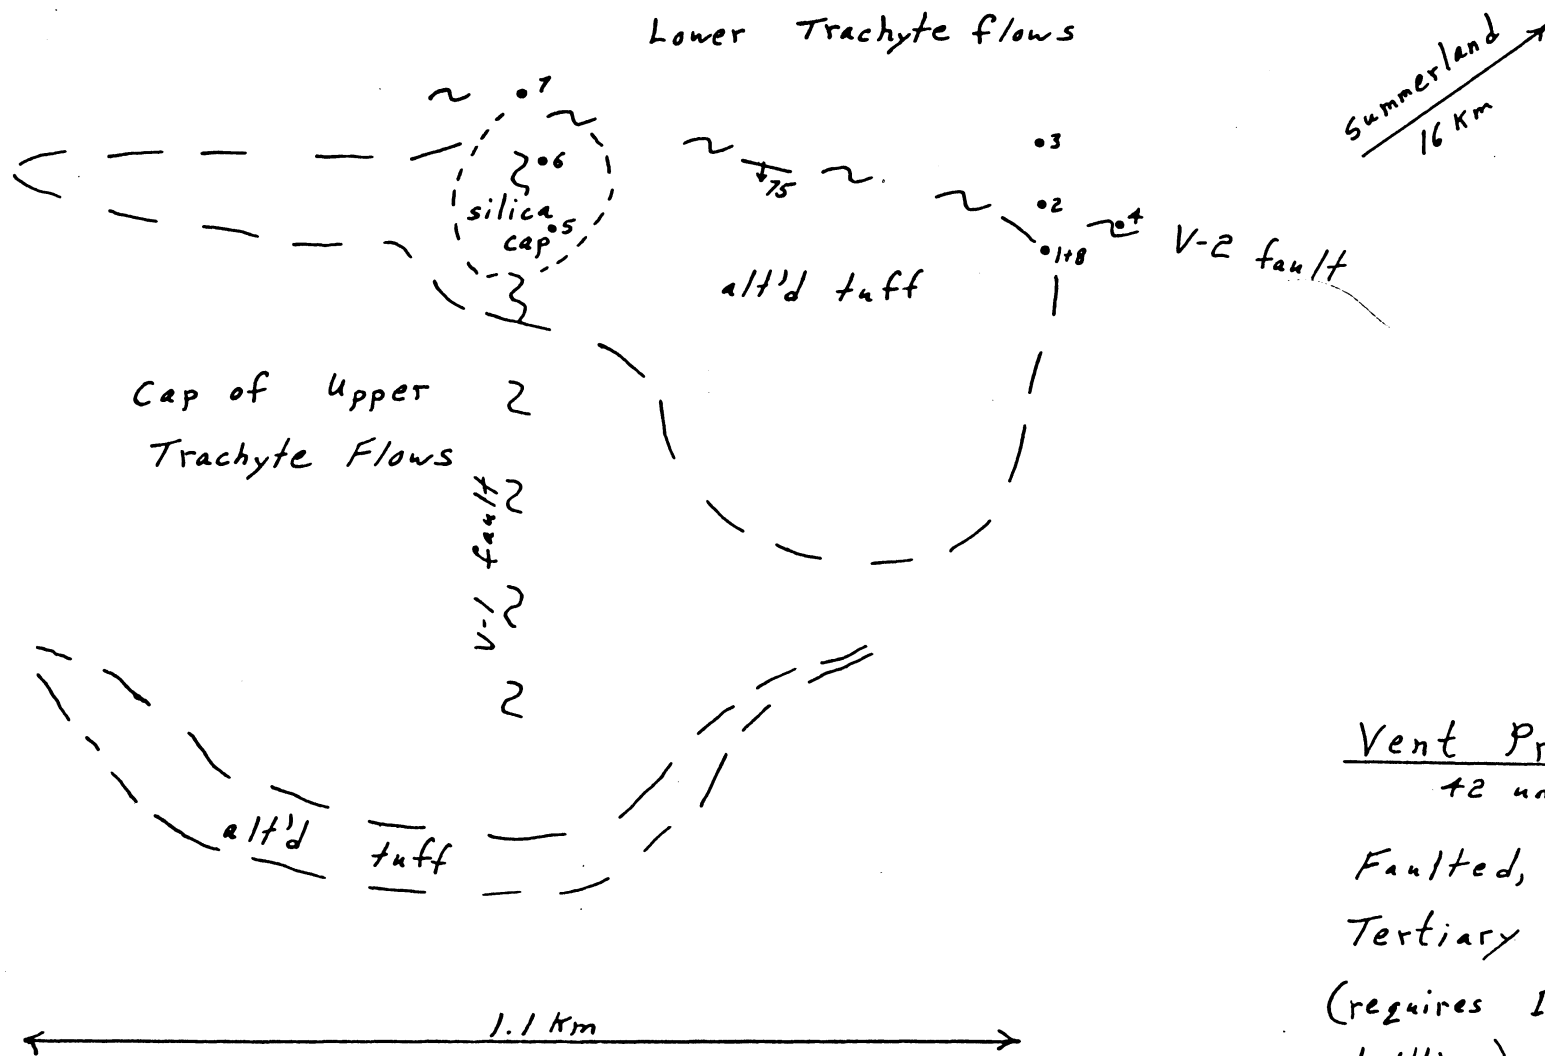 Lower Trachyte flows
Summerland
16 Km
7
6
silica
5
cap
75
3
2
4
1+8
V-2 fault
alt'd tuff
Cap of Upper
Trachyte Flows
V-1 fault
alt'd tuff
Vent
42
Faulted,
Tertiary
(requires
1.1 Km